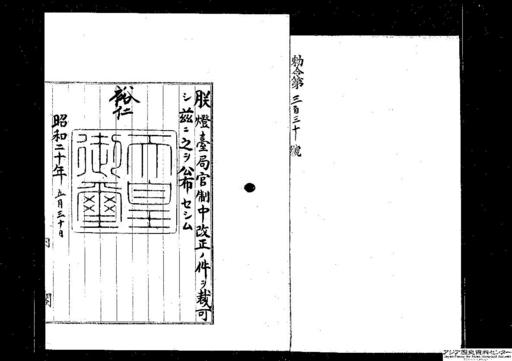 勅令第三百三十號
朕燈臺局官制中改正ノ件ヲ裁可
シ茲ニ之ヲ公布セシム
裕仁
天皇
御璽
昭和二十年五月三十日
内閣
アジア歴史資料センター